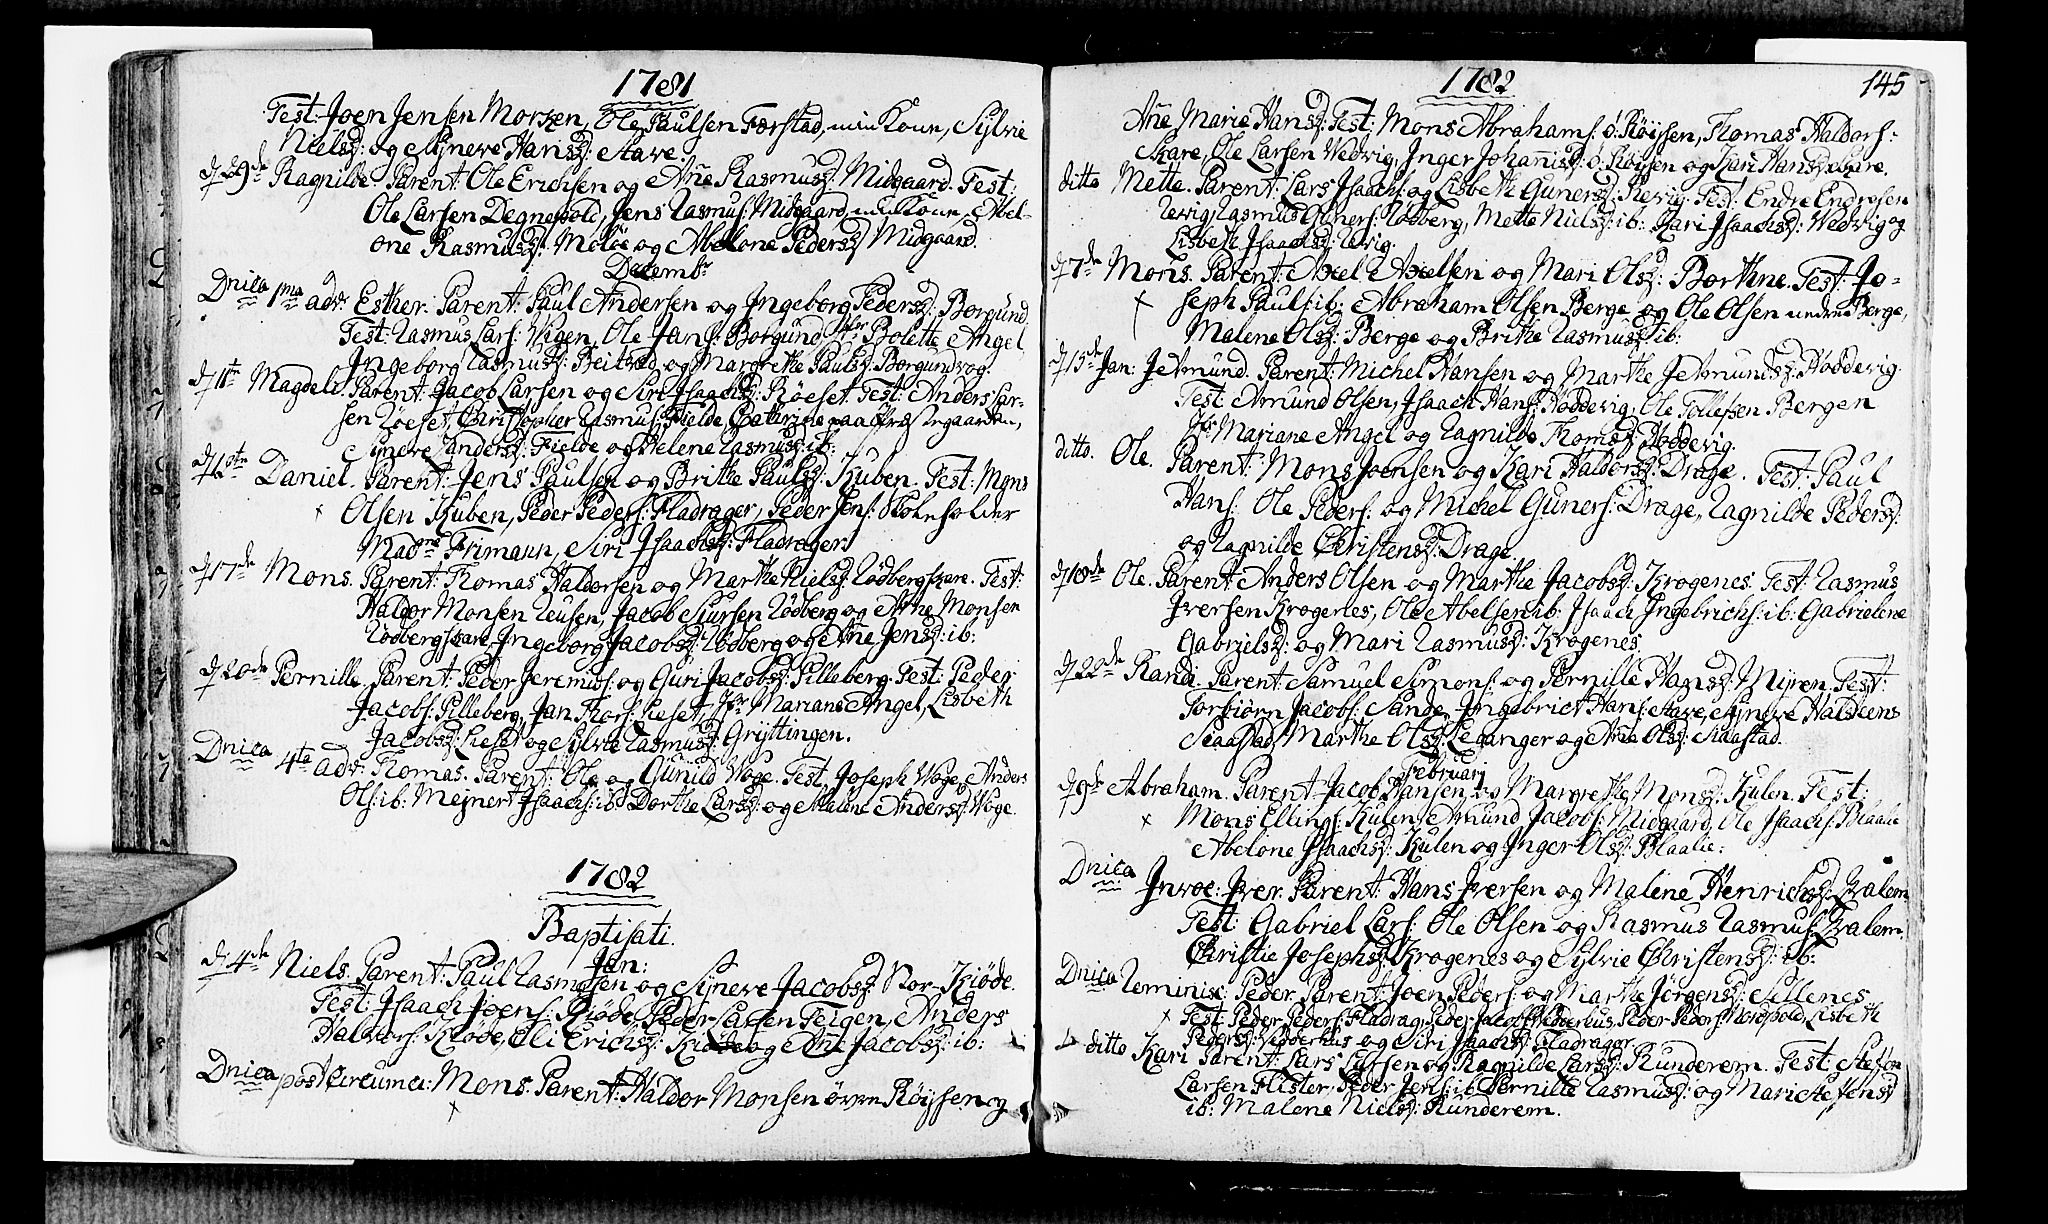 1781
Test: Joen Jensen Morken, Ole Paulsen Færstad, min Kone, Sylvie
Nielsd: og Syneve Hansd: Aare.
d 29de Ragnilde. Parent: Ole Erichsen og Ane Rasmusd: Midgaard. Test:
Ole Larsen Degnepold, Jens Rasmus: Midgaard, min Kone, Abel-
one Rasmusd: Meløe og Abelone Pedersd: Midgaard.
Decembr
Dnica 1ma adv: Esther. Parent: Paul Andersen og Ingeborg Pedersd: Borgund
Test: Rasmus Lars: Vigen, Ole Jans: Borgund, Jfr Bolette Angel,
Ingeborg Rasmusd: Beitved og Margrethe Paulsd: Borgundvog.
d 11te Magdeli. Parent: Jacob Larsen og Siri Isaachsd: Røeset. Test: Anders Lar-
sen Røeset, Christopher Rasmus: Fielde, Cathrine paa Præstegaarden,
Syneve Andersd: Fielde og Helene Rasmusd: ib:
d 12te Daniel. Parent: Jens Paulsen og Brithe Paulsd: Kuben. Test: Mons
Olsen Kuben, Peder Peders: Fladrager, Peder Jens: Skoleholder
Madme Frimann, Siri Isaachsd: Fladrager.
d 17de Mons. Parent: Thomas Haldorsen og Marthe Nielsd: Rødbergskare. Test:
Haldor Monsen Reusen, Jacob Siursen Rødberg og Arne Monsen
Rødbergskare, Ingeborg Jacobsd: Rødberg og Ane Jensd: ib:
d 20de Pernille. Parent: Peder Jeremis: og Guri Jacobsd: Pilleberg. Test: Peder
Jacobs: Pilleberg, Jan Thors: Lieset, Jfr Mariane Angel, Lisbeth
Jacobsd: Lieset og Sylvie Rasmusd: Gryttingen.
Dnica 4ta adv: Thomas. Parent: Ole og Gunild Voge. Test: Joseph Voge, Anders
Ols: ib: Mejnert Isaachs: ib: Dorthe Larsd: og Malene Andersd: Voge.
1782
Baptisati.
Jan:
d 4de Niels. Parent: Paul Rasmusen og Syneve Jacobsd: Nor-Kiøde.
Test: Isaach Joens: Kiøde, Peder Larsen Teigen, Anders
Halvors: Kiøde, Eli Erichsd: Kiøde og Ane Jacobsd: ib:
Dnica post Circumci: Mons. Parent: Haldor Monsen øvre Røysen og
1782 145
Ane Marie Hansd: Test: Mons Abrahams: ø: Røysen, Thomas Haldors:
Skare, Ole Larsen Vedvig, Inger Johanisd: ø: Røysen og Kari Hansd: Skare.
ditto Mette. Parent: Lars Isaachs: og Lisbeth Gunersd: Revig. Test: Endre Endresen
Revig, Rasmus Guners: Rødberg, Mette Nielsd: ib: Kari Isaachsd: Vedvig og
Lisbeth Isaachsd: Revig.
d 7de Mons. Parent: Axel Axelsen og Mari Olsd: Borthne. Test: Jo-
seph Pauls: ib: Abraham Olsen Berge og Ole Olsen nedre Berge,
Malene Olsd: Berge og Brithe Rasmusd: ib:
d 15de Jan: Jetmund. Parent: Michel Hansen og Marthe Jetmundsd: Hoddevig.
Test: Amund Olsen, Isaach Hans: Hoddevig, Ole Tollefsen Bergen
Jfr Mariane Angel og Ragnilde Thomsd: Hoddevig.
ditto. Ole. Parent: Mons Joensen og Kari Haldorsd: Drage. Test: Paul
Hans: Ole Peders: og Michel Guners: Drage, Ragnilde Pedersd:
og Ragnilde Christensd: Drage.
d 18de Ole. Parent: Anders Olsen og Marthe Jacobsd: Krogenes. Test: Rasmus
Iversen Krogenes, Ole Abelsen ib: Isaach Ingebrichs: ib: Gabrielene
Gabrielsd: og Mari Rasmusd: Krogenes.
d 22de Randi. Parent: Samuel Simons: og Pernille Hansd: Myren. Test:
Torbiørn Jacobs: Sande, Ingebrict Hans: Aare, Syneve Halsteens
Staastad, Marthe Olsd: Levanger og Ane Olsd: Staastad.
Februarj
d 9de Abraham. Parent: Jacob Hansen og Margrethe Monsd: Kulen. Test:
Mons Ellings: Kulen, Amund Jacobs: Midgaard, Ole Isaachs: Blaalie
Abelone Isaachsd: Kulen og Inger Olsd: Blaalie:
Dnica Invoc: Iver. Parent: Hans Iversen og Malene Henrichsd: Hvalem
Test: Gabriel Lars: Ole Olsen og Rasmus Rasmus: Hvalem.
Christie Josephsd: Krogenes og Sylvie Christensd: ib:
Dnica Reminisc: Peder. Parent: Joen Peders: og Marthe Jørgensd: Sellenes
Test: Peder Peders: Fladrag: Peder Jacobs: Vedderhus, Peder Peders: Nordpold, Lisbeth
Pedersd: Vedderhus og Siri Isaachsd: Fladrager.
ditto Kari Parent: Lars Larsen og Ragnilde Larsd: Runderem. Test: Steffen
Larsen Flister, Peder Jens: ib: Pernille Rasmusd: og Mari Stefensd
ib: Malene Nielsd: Runderem.